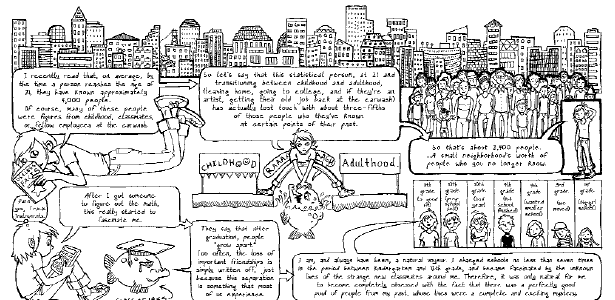 I recently read that, on average, by
the time a person reaches the age of
21, they have known approximately
4,000 people.
Of course, many of these people
were figures from childhood, classmates,
or fellow employees at the carwash.
So let's say that the statistical person, at 21 and
transitioning between childhood and adulthood
(leaving home, going to college, and if they're an
artist, getting their old job back at the carwash)
has actually lost touch with about three-fifths
of those people who they've known
at certain points of their past.
So that's about 2,400 people.
A small neighborhood's worth of
people who you no longer know.
CHILDHOOD
Adulthood.
After I got someone
to figure out the math,
this really started to
fascinate me.
They say that after
graduation, people
"grow apart."
Too often, the loss of
important friendships is
simply written off, just
because the separation
is something that most
of us experience.
11th
grade
10th
grade
9th
grade
7th
grade
4th
grade
3rd
grade
I am, and always have been, a natural voyeur. I changed schools no less than seven times
in the period between kindergarten and 12th grade, and became fascinated by the unknown
lives of the strange new classmates around me. Therefore, it was only natural for me
to become completely obsessed with the fact that there was a perfectly good
pool of people from my past, whose lives were a complete and exciting mystery.